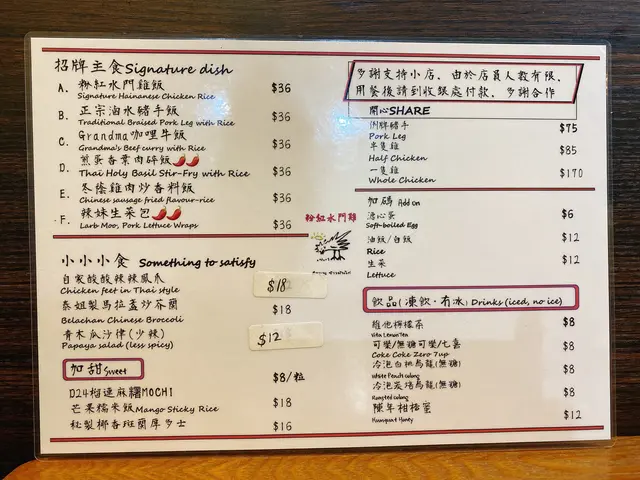 招牌主食Signature dish
A. 粉紅水門雞飯 $36
Signature Hainanese Chicken Rice
B. 正宗油水豬手飯 $36
Traditional Braised Pork Leg with Rice
C. Grandma咖喱牛飯 $36
Grandma's Beef curry with Rice
D. 煎蛋香葉肉碎飯 $36
Thai Holy Basil Stir-Fry with Rice
E. 冬蔭雞肉炒香料飯 $36
Chinese sausage fried flavour-rice
F. 辣妹生菜包 $36
Larb Moo, Pork Lettuce Wraps
小小小食 Something to satisfy
自家酸酸辣辣鳳爪 $18
Chicken feet in Thai style
泰姐製馬拉盞炒芥蘭 $18
Belachan Chinese Broccoli
青木瓜沙律(少辣) $12
Papaya salad (less spicy)
加甜Sweet
D24榴槤麻糬MOCHI $8/粒
芒果糯米飯Mango Sticky Rice $18
秘製椰香斑蘭厚多士 $16
粉紅水門雞
多謝支持小店、由於店員人數有限、
用餐後請到收銀處付款、多謝合作
開心SHARE
俐牌豬手 $75
Pork Leg
半隻雞 $85
Half Chicken
一隻雞 $170
Whole Chicken
加碼 Add on
溏心蛋 $6
Soft-boiled Egg
油飯/白飯 $12
Rice
生菜 $12
Lettuce
飲品(凍飲·冇冰) Drinks (iced, no ice)
維他檸檬茶 $8
Vita LemonTea
可樂/無糖可樂/七喜 $8
Coke Coke Zero 7up
冷泡白桃烏龍(無糖) $8
White Peach oolong
冷泡炭焙烏龍(無糖) $8
Roasted oolong
陳年柑桔蜜 $12
Kumquat Honey